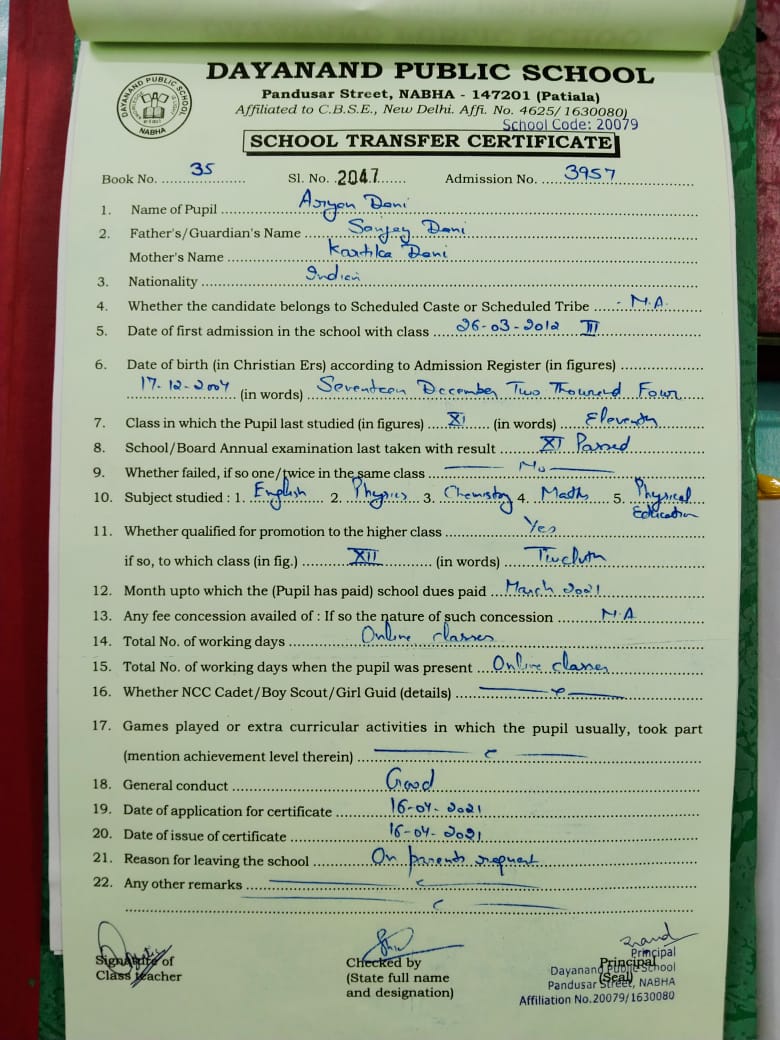 DAYANAND PUBLIC SCHOOL
Pandusar Street, NABHA - 147201 (Patiala)
Affiliated to C.B.S.E., New Delhi. Affi. No. 4625/ 1630080)
School Code: 20079
DAYANAND PUBLIC SCHOOL NABHA
SCHOOL TRANSFER CERTIFICATE
Book No. 35 Sl. No. 2047 Admission No. 3957
1. Name of Pupil Aryan Dani
2. Father's/Guardian's Name Sanjay Dani
Mother's Name Kartika Dani
3. Nationality Indian
4. Whether the candidate belongs to Scheduled Caste or Scheduled Tribe - N.A.
5. Date of first admission in the school with class 26-03-2012 III
6. Date of birth (in Christian Ers) according to Admission Register (in figures)
17-12-2004 (in words) Seventeen December Two Thousand Four
7. Class in which the Pupil last studied (in figures) XI (in words) Eleventh
8. School/Board Annual examination last taken with result XI Passed
9. Whether failed, if so one/twice in the same class No
10. Subject studied : 1. English 2. Physics 3. Chemistry 4. Maths 5. Physical
Education
11. Whether qualified for promotion to the higher class Yes
if so, to which class (in fig.) XII (in words)
12. Month upto which the (Pupil has paid) school dues paid March 2021
13. Any fee concession availed of : If so the nature of such concession N.A
14. Total No. of working days Online classes
15. Total No. of working days when the pupil was present Online classes
16. Whether NCC Cadet/Boy Scout/Girl Guid (details)
17. Games played or extra curricular activities in which the pupil usually, took part
(mention achievement level therein)
18. General conduct Good
19. Date of application for certificate 16-04-2021
20. Date of issue of certificate 16-04-2021
21. Reason for leaving the school On parents request
22. Any other remarks
Signature of
Class teacher
Checked by
(State full name
and designation)
Principal
(Seal)
Principal
Dayanand Public School
Pandusar Street, NABHA
Affiliation No.20079/1630080